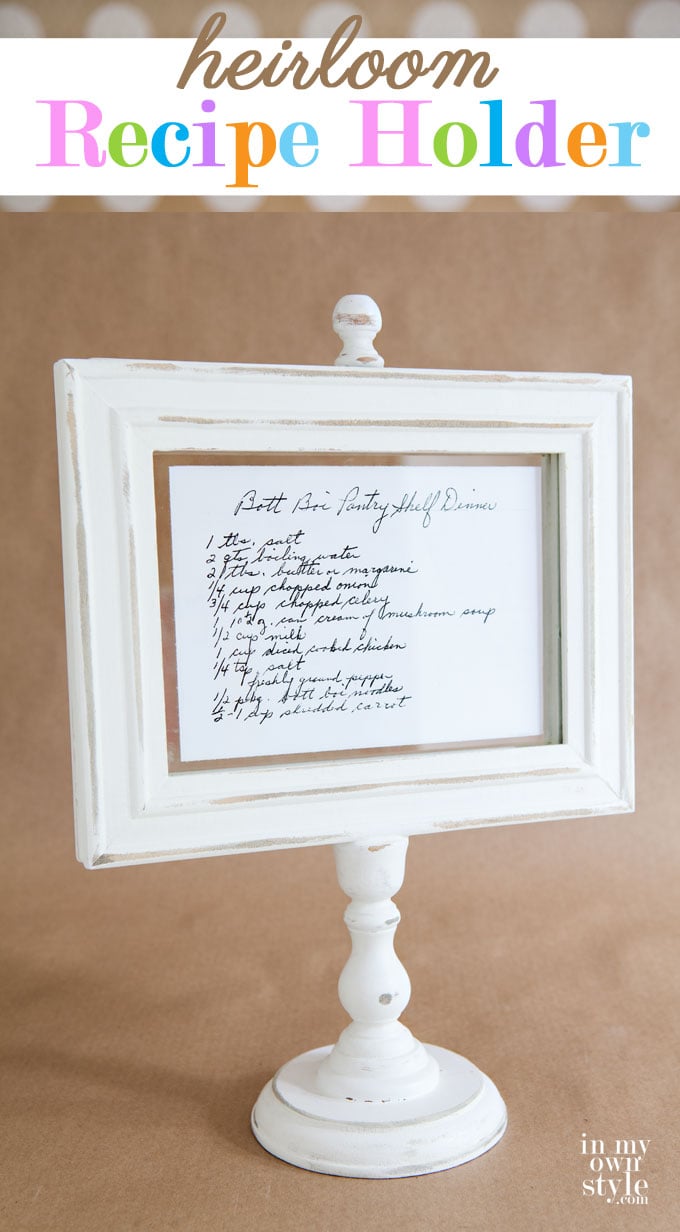 heirloom
Recipe Holder
Bott Boi Pantry Shelf Dinner
1 tbs. salt
2 qts boiling water
2 tbs. butter or margarine
1/4 cup chopped onion
3/4 cup chopped celery
1 10 1/2 oz. can cream of mushroom soup
1/2 cup milk
1 cup diced cooked chicken
1/4 tsp salt
freshly ground pepper
1/2 pkg. bott boi noodles
1/2 - 1 cup shredded carrot
in my
own
style
.com